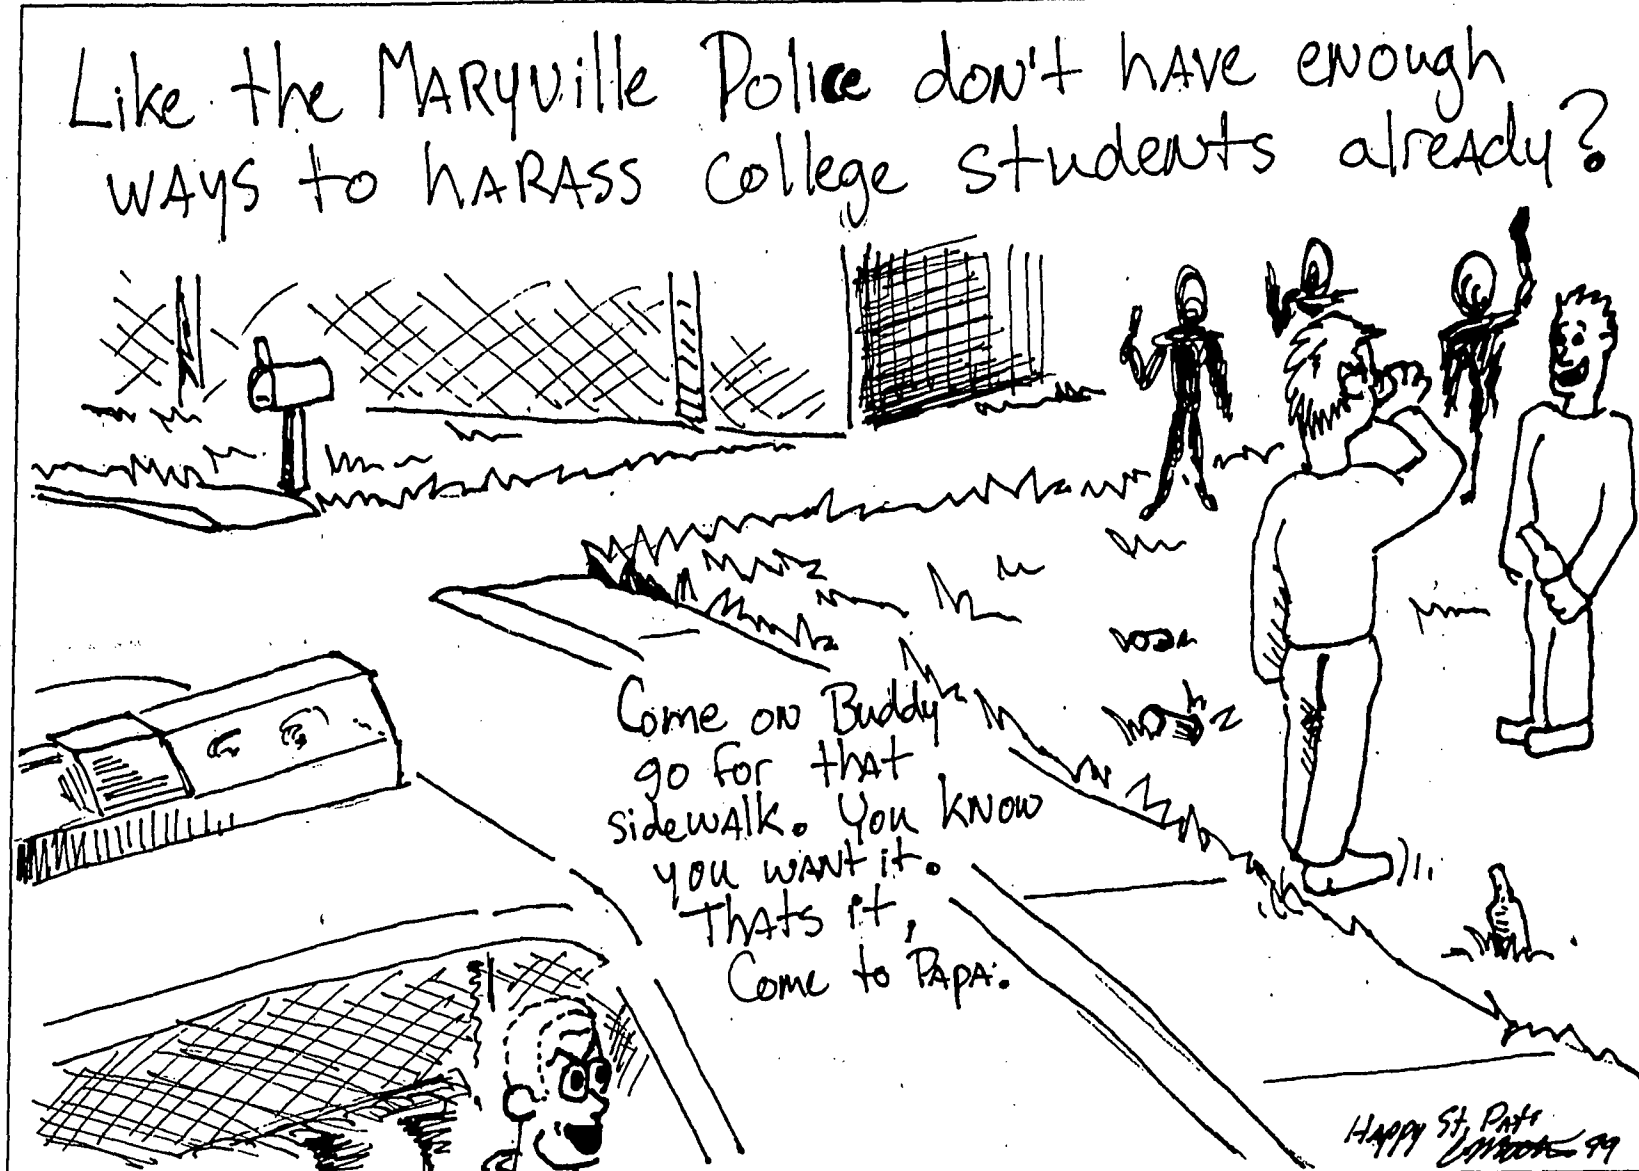 Like the MARYVille Police don't hAVE enough
WAYS to hARASS College Students already?
Come on Buddy
go for that
sidewAlk. You KNOW
you WANt it.
ThAts it,
Come to PAPA.
HAPPY St. PAts
99